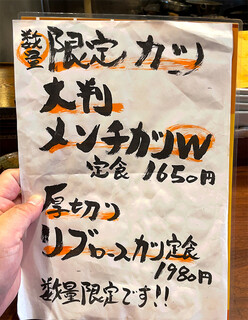 数量限定カツ
大判
メンチカツW
定食 1650円
厚切り
リブロースカツ定食
1980円
数量限定です!!